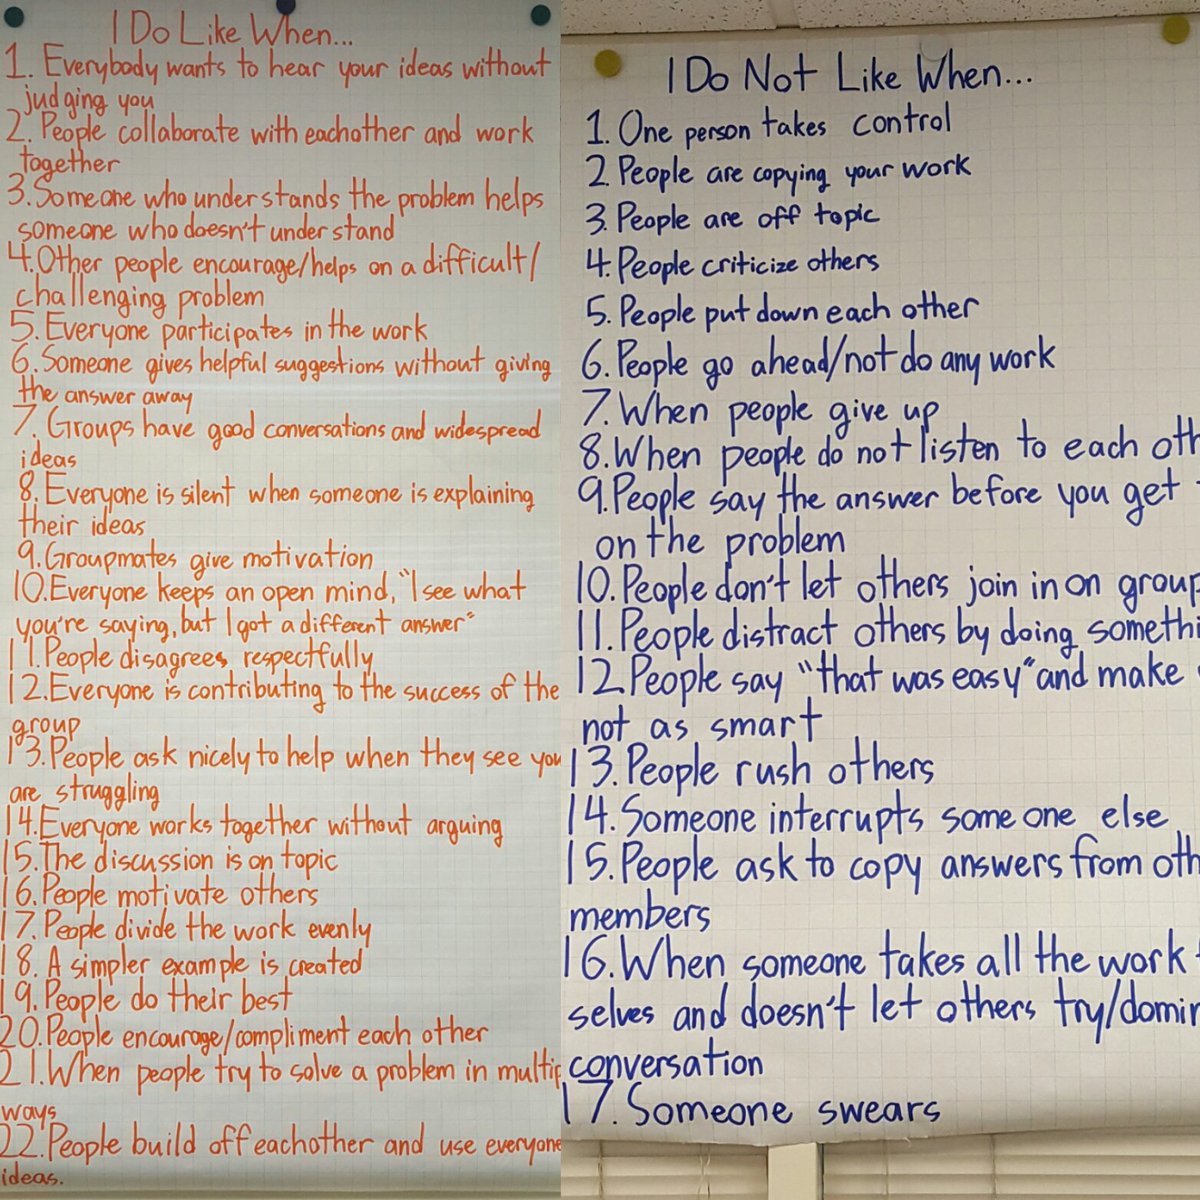 I Do Like When...
1. Everybody wants to hear your ideas without
judging you
2. People collaborate with eachother and work
together
3. Someone who understands the problem helps
someone who doesn't understand
4. Other people encourage/helps on a difficult/
challenging problem
5. Everyone participates in the work
6. Someone gives helpful suggestions without giving
the answer away
7. Groups have good conversations and widespread
ideas
8. Everyone is silent when someone is explaining
their ideas
9. Groupmates give motivation
10. Everyone keeps an open mind, "I see what
you're saying, but I got a different answer"
11. People disagrees respectfully
12. Everyone is contributing to the success of the
group
13. People ask nicely to help when they see you
are struggling
14. Everyone works together without arguing
15. The discussion is on topic
16. People motivate others
17. People divide the work evenly
18. A simpler example is created
19. People do their best
20. People encourage/compliment each other
21. When people try to solve a problem in multip
ways
22. People build off eachother and use everyone
ideas.
I Do Not Like When...
1. One person takes control
2. People are copying your work
3. People are off topic
4. People criticize others
5. People put down each other
6. People go ahead/not do any work
7. When people give up
8. When people do not listen to each oth
9. People say the answer before you get
on the problem
10. People don't let others join in on group
11. People distract others by doing somethi
12. People say "that was easy" and make
not as smart
13. People rush others
14. Someone interrupts some one else
15. People ask to copy answers from oth
members
16. When someone takes all the work
selves and doesn't let others try/domin
conversation
17. Someone swears